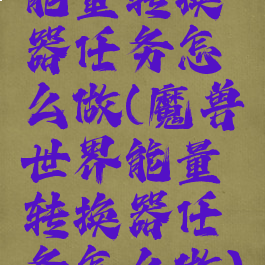 能量转换
器任务怎
么做(魔兽
世界能量
转换器任
务怎么做)